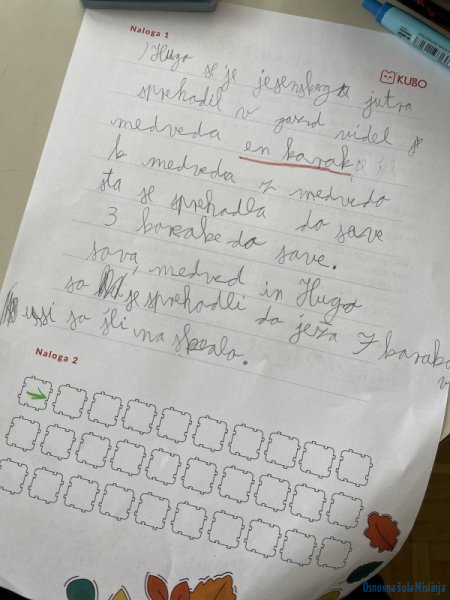 Naloga 1
KUBO
Hugo se je jesenskega jutra
sprehodil v gozd videl je
medveda en korak
k medveda z medvedo
sta se sprehodla do save
3 korake do save.
sova, medved in Hugo
so se sprehodli do ježa 7 korakov
vssi so šli na skalo.
Naloga 2
Osnovna šola Mislinja